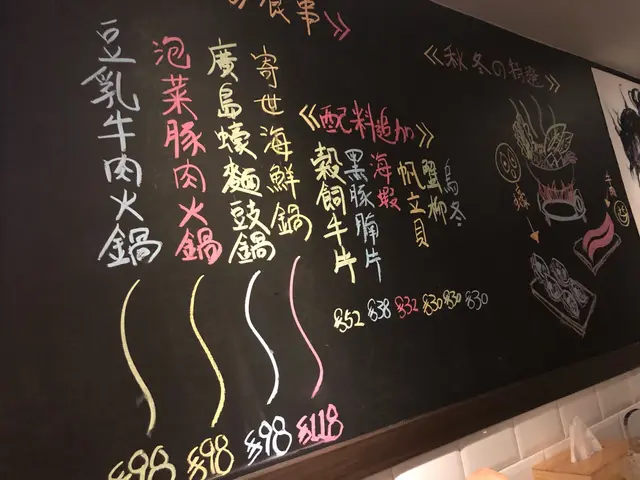 《秋冬の特選》
《配料追加》
烏冬
$30
蟹柳
$30
帆立貝
$30
海蝦
$32
黑豚腩片
$38
穀飼牛片
$52
の食事》
寄世海鮮鍋
$118
廣島蠔麵豉鍋
$98
泡菜豚肉火鍋
$98
豆乳牛肉火鍋
$98